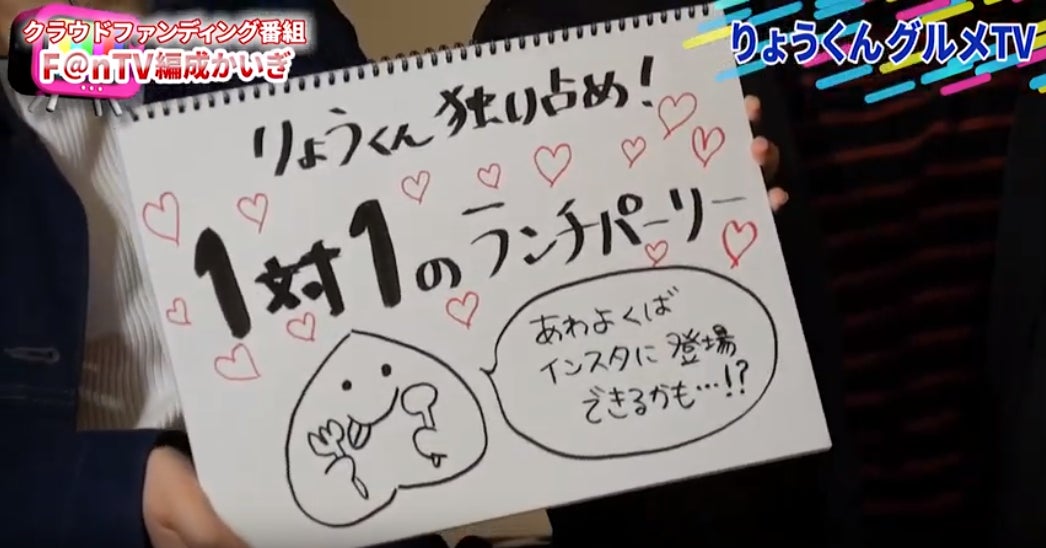 クラウドファンディング番組
F@nTV編成かいぎ
りょうくんグルメTV
りょうくん独り占め!
1対1のランチパーリー
あわよくば
インスタに登場
できるかも…!?